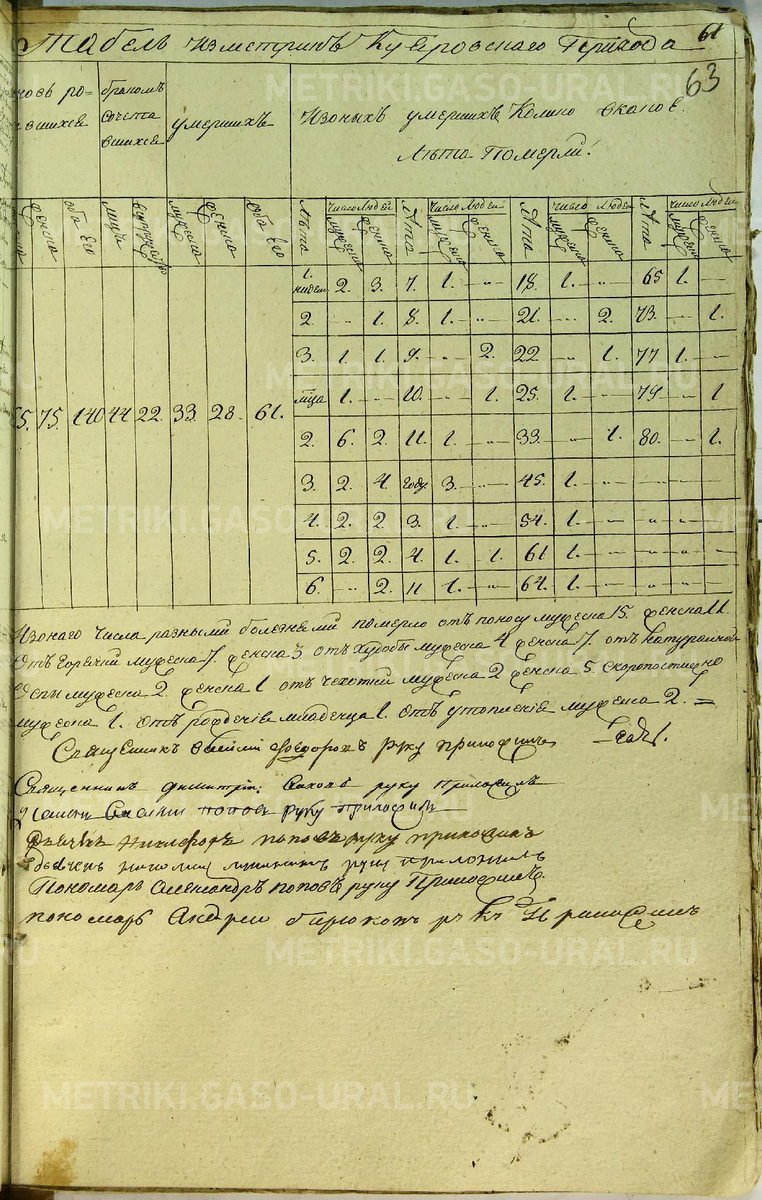 61
Табель изметрикъ Кугировскаго Прихода
63
новь ро-
дившихся
бракомъ
сочета
вшихся
умершихъ
Изоныхъ умершихъ Колико вкакое.
Лѣта Померли.
женска
оба его
лицъ
мужеска
женска
оба его
Лѣта
Число Людей
мужеска
женска
Лѣта
Число Людей
мужеска
женска
Лѣта
Число Людей
мужеска
женска
Лѣта
Число Людей
мужеска
женска
1. недели 2. 3. 7. 1. -„- 18. 1. -„- 65 1. -
2. -„- 1. 8. 1. -„- 21. -„- 2. 73. -„- 1.
3. 1. 1. 9. -„- 2. 22 -„- 1. 77 1. -
мца 1. -„- 10. -„- 1. 25. 1. -„- 79 -„- 1
65. 75. 140 44 22. 33. 28. 61.
2. 6. 2. 11. 1. -„- 33. -„- 1. 80. -„- 1.
3. 2. 4. году 3. -„- 45. 1. -„- -„- -„- -„-
4. 2. 2. 3. 1. -„- 54. 1. -„- -„- -„- -„-
5. 2. 2. 4. 1. 1. 61 1. -„- -„- -„- -„-
6. -„- 2. 11 1. -„- 64. 1. -„- -„- -„- -„-
Изонаго числа разными болезнями померло отъ поносу мужеска 15. женска 11
Отъ Горячки мужеска 7. женска 3 отъ худобы мужеска 4 женска 7. отъ натуралной
Оспы мужеска 2. женска 1 отъ чехотки мужеска 2 женска 5. скоропостижно
мужеска 1. Отъ рождение младенца 1. Отъ утопление мужеска 2. =
Священникъ Василий Федоровъ руку приложилъ
Священникъ Димитрий руку Приложилъ
Василий Попов руку приложилъ
Дьячекъ Никифоръ поповъ руку приложилъ
руку приложилъ
Пономарь Александръ поповъ руку Приложилъ
пономарь Андреи бирюковъ руку Приложилъ
METRIKI.GASO-URAL.RU